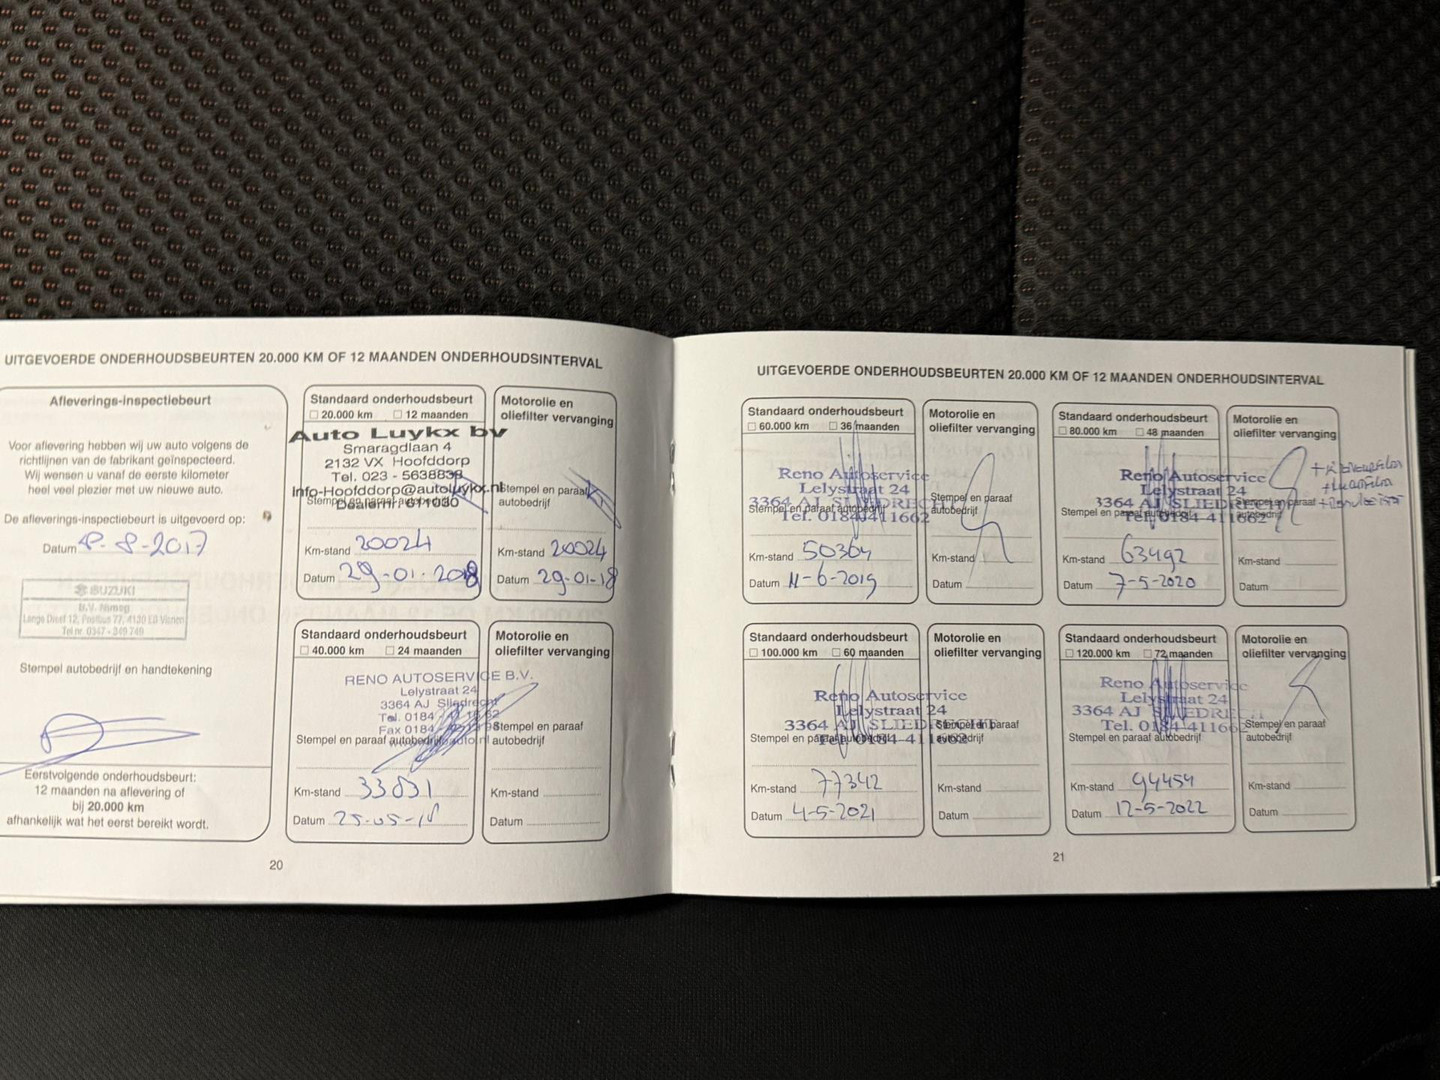 UITGEVOERDE ONDERHOUDSBEURTEN 20.000 KM OF 12 MAANDEN ONDERHOUDSINTERVAL
Afleverings-inspectiebeurt
Voor aflevering hebben wij uw auto volgens de
richtlijnen van de fabrikant geïnspecteerd.
Wij wensen u vanaf de eerste kilometer
heel veel plezier met uw nieuwe auto.
De afleverings-inspectiebeurt is uitgevoerd op:
Datum 8-8-2017
SUZUKI
B.V. Nimag
Lange Dreef 12, Postbus 77, 4130 EB Vianen
Tel nr. 0347 - 349 749
Stempel autobedrijf en handtekening
Eerstvolgende onderhoudsbeurt:
12 maanden na aflevering of
bij 20.000 km
afhankelijk wat het eerst bereikt wordt.
Standaard onderhoudsbeurt
20.000 km 12 maanden
Auto Luykx bv
Smaragdlaan 4
2132 VX Hoofddorp
Tel. 023 - 5638838
Info-Hoofddorp@autoluykx.nl
Stempel en paraaf autobedrijf
Dealernr. 611030
Km-stand 20024
Datum 29-01-2018
Motorolie en
oliefilter vervanging
Stempel en paraaf
autobedrijf
Km-stand 20024
Datum 29-01-18
Standaard onderhoudsbeurt
40.000 km 24 maanden
RENO AUTOSERVICE B.V.
Lelystraat 24
3364 AJ Sliedrecht
Tel. 0184
Fax 0184
Stempel en paraaf autobedrijf
Km-stand 33831
Datum 25-05-18
Motorolie en
oliefilter vervanging
Stempel en paraaf
autobedrijf
Km-stand
Datum
20
UITGEVOERDE ONDERHOUDSBEURTEN 20.000 KM OF 12 MAANDEN ONDERHOUDSINTERVAL
Standaard onderhoudsbeurt
60.000 km 36 maanden
Reno Autoservice
Lelystraat 24
3364 AJ SLIEDRECHT
Stempel en paraaf autobedrijf
Tel. 0184-411662
Km-stand 50364
Datum 11-6-2019
Motorolie en
oliefilter vervanging
Stempel en paraaf
autobedrijf
Km-stand
Datum
Standaard onderhoudsbeurt
80.000 km 48 maanden
Reno Autoservice
Lelystraat 24
3364 AJ SLIEDRECHT
Stempel en paraaf autobedrijf
Tel. 0184-411662
Km-stand 63492
Datum 7-5-2020
Motorolie en
oliefilter vervanging
Stempel en paraaf
autobedrijf
Km-stand
Datum
Standaard onderhoudsbeurt
100.000 km 60 maanden
Reno Autoservice
Lelystraat 24
3364 AJ SLIEDRECHT
Stempel en paraaf autobedrijf
Tel. 0184-411662
Km-stand 77342
Datum 4-5-2021
Motorolie en
oliefilter vervanging
Stempel en paraaf
autobedrijf
Km-stand
Datum
Standaard onderhoudsbeurt
120.000 km 72 maanden
Reno Autoservice
Lelystraat 24
3364 AJ SLIEDRECHT
Tel. 0184-411662
Stempel en paraaf autobedrijf
Km-stand 94454
Datum 12-5-2022
Motorolie en
oliefilter vervanging
Stempel en paraaf
autobedrijf
Km-stand
Datum
21